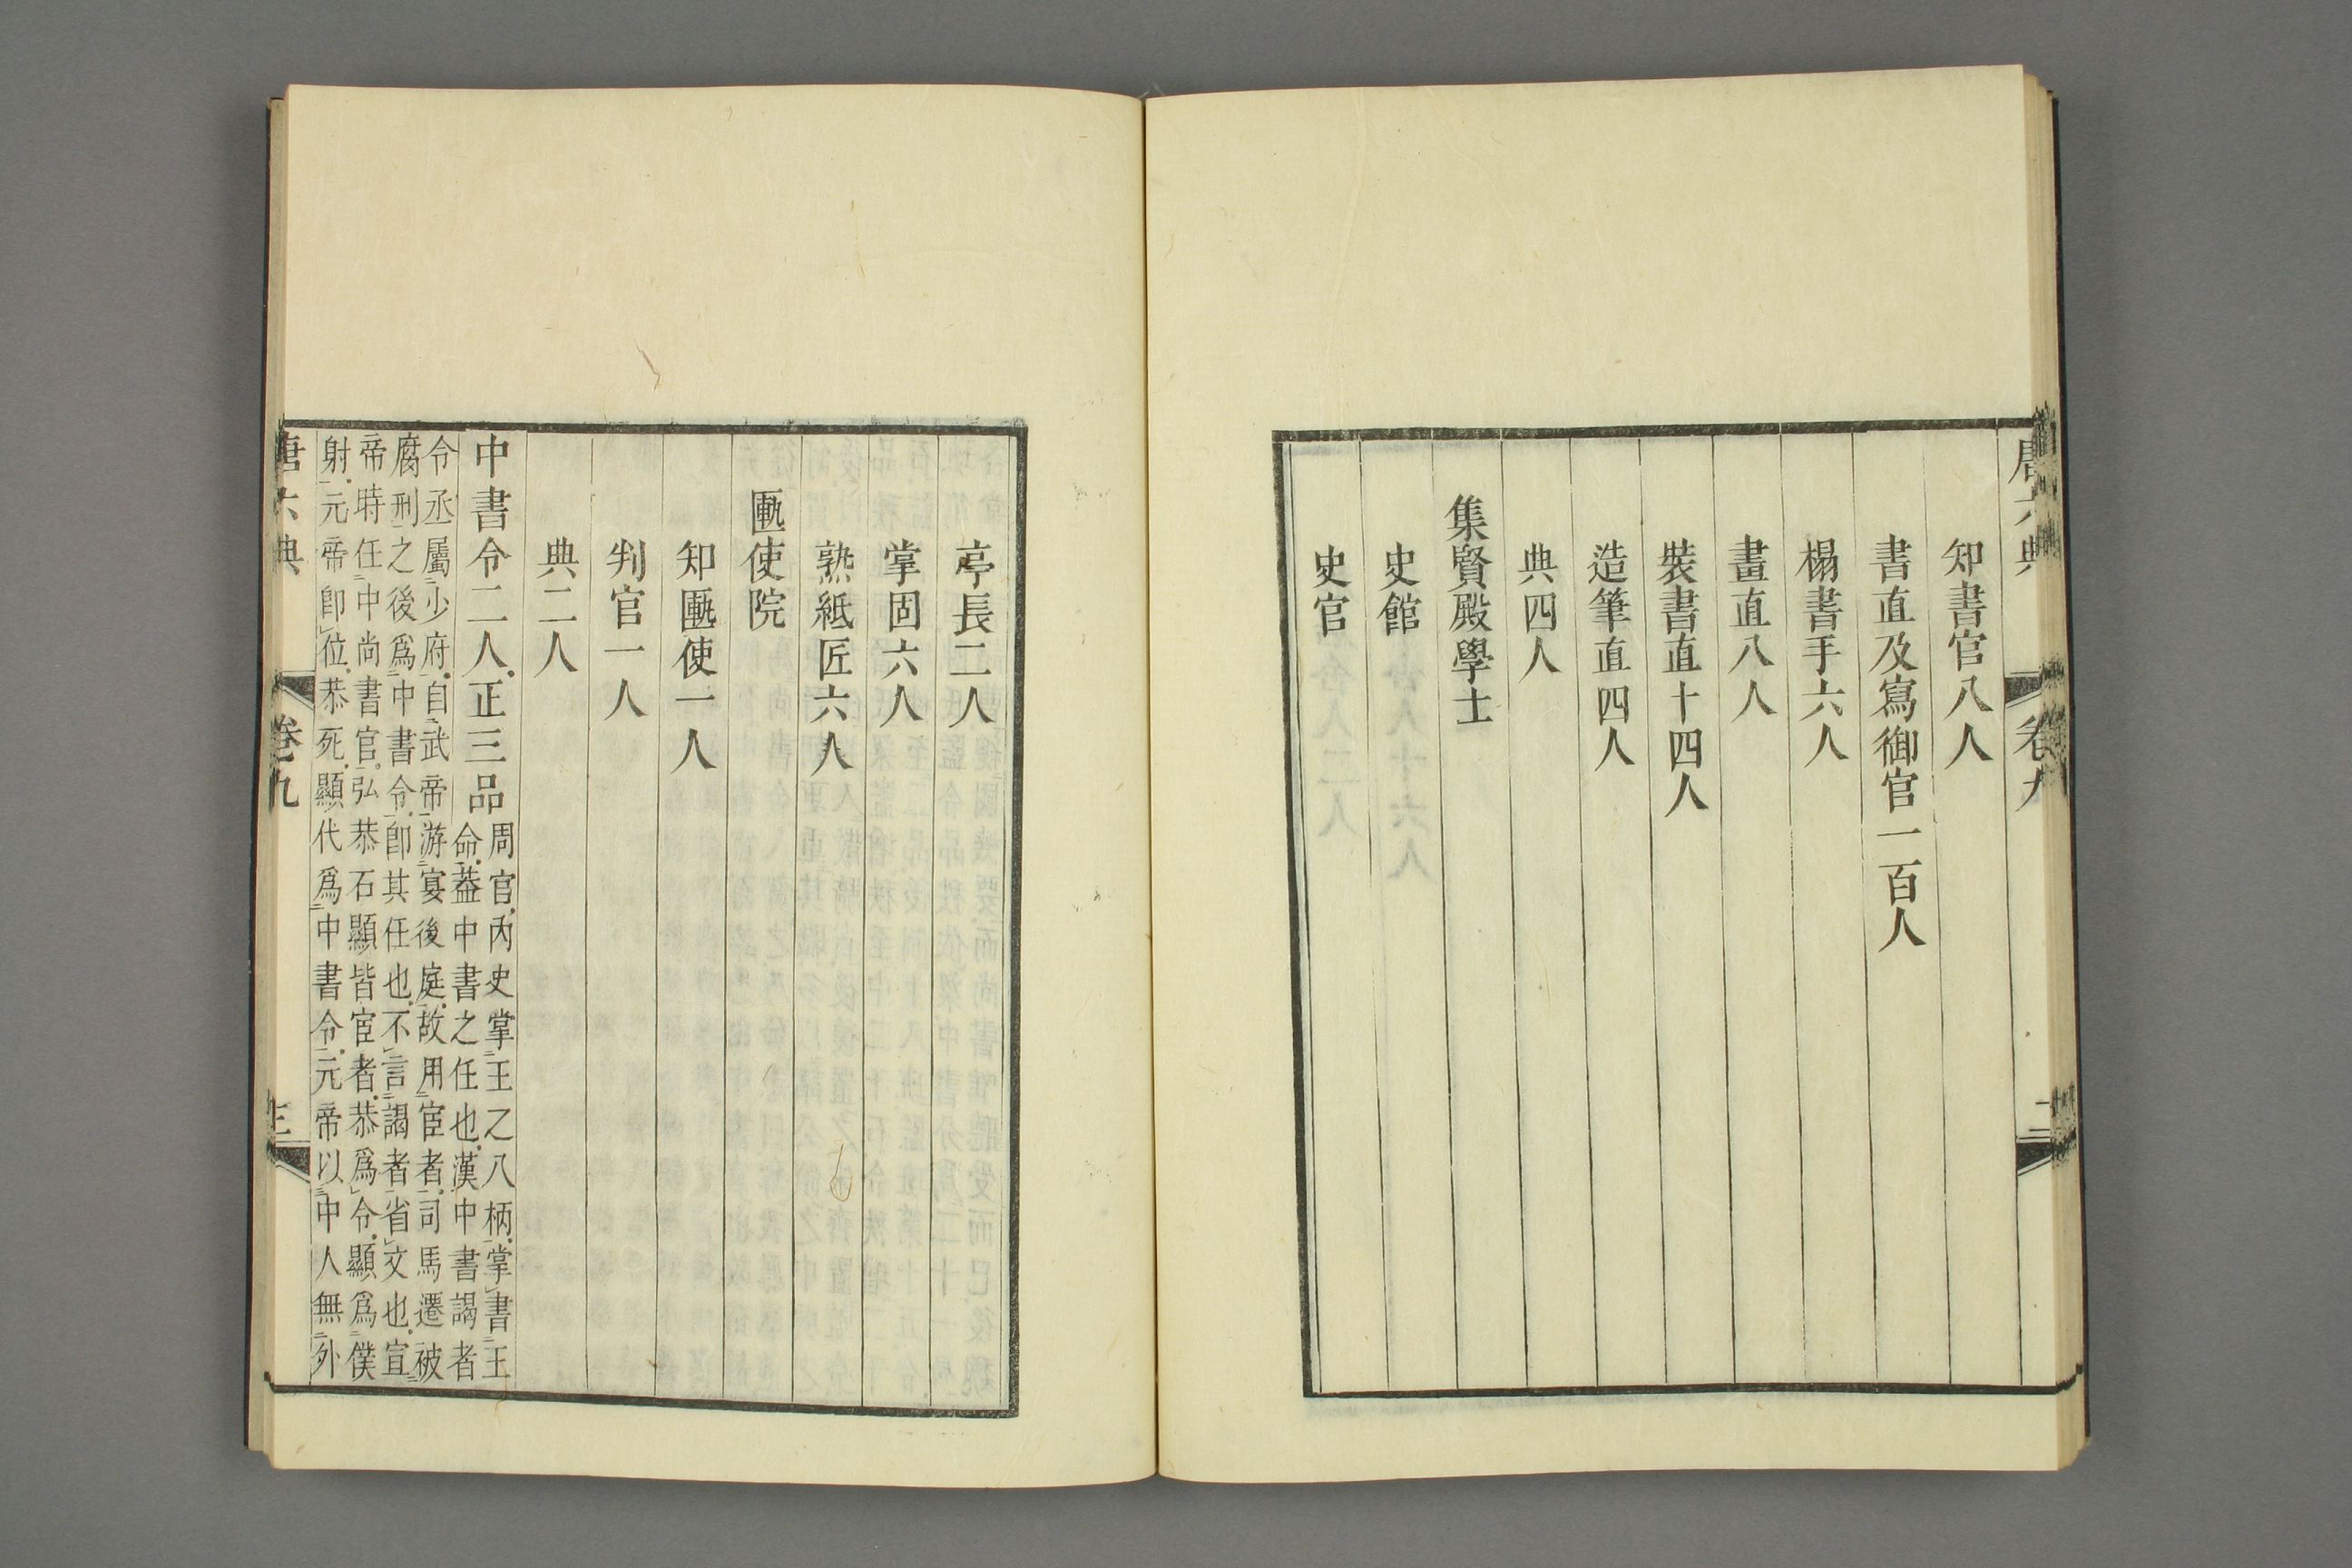 唐六典 卷九 二
知書官八人
書直及寫御官一百人
榻書手六人
畫直八人
裝書直十四人
造筆直四人
典四人
集賢殿學士
史館
史官
亭長二人
掌固六人
熟紙匠六人
匭使院
知匭使一人
判官一人
典二人
中書令二人正三品
周官內史掌王之八柄掌書王
命葢中書之任也漢中書謁者
令丞屬少府自武帝游宴後庭故用宦者司馬遷被
腐刑之後爲中書令卽其任也不言謁者省文也宣
帝時任中尚書官弘恭石顯皆宦者恭爲令顯爲僕
射元帝卽位恭死顯代爲中書令元帝以中人無外
唐六典 卷九 三